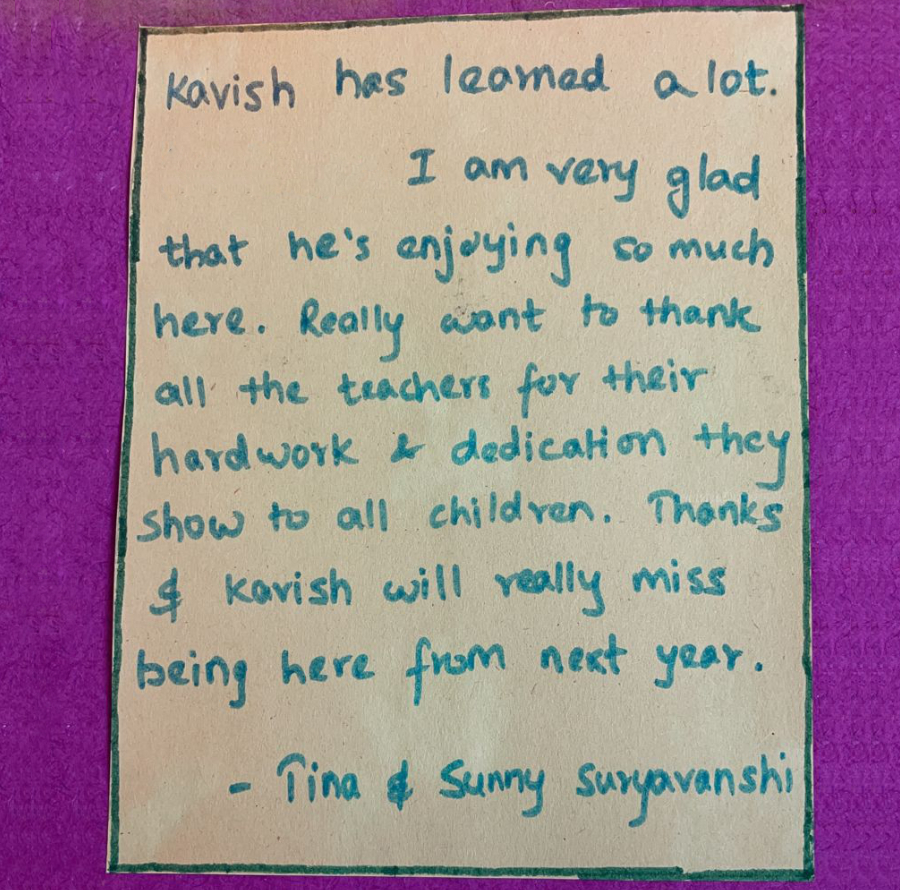 Kavish has learned a lot.
I am very glad
that he's enjoying so much
here. Really want to thank
all the teachers for their
hardwork & dedication they
show to all children. Thanks
& Kavish will really miss
being here from next year.
- Tina & Sunny Suryavanshi